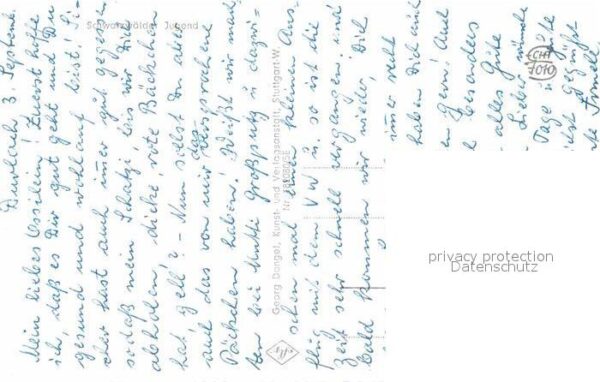 Schwarzwälder Jugend
Durlach, 3. Septemb.
Mein liebes Ossilein! Zuerst hoffe
ich, daß es Dir gut geht und Du
gesund und wohlauf bist! Si-
cher hast auch immer gut gegessen
sodaß mein Schatzi, bis wir Dich
abholen, dicke, rote Bäckchen
hat, gell? - Nun sollst Du aber
auch das von mir versprochene
das
Päckchen haben! Weißt wir mach
ten bei Mutti Großputz u. dazwi=
schen mal einen kleinen Aus-
flug mit dem VW u. so ist die
Zeit sehr schnell vergangen und
Bald kommen wir wieder, Dich
immer sehr
haben Dich auch
en Gern! Auch
besonders
alles Gute
Liebe, wünsche
Tage u
Georg Dangel, Kunst- und Verlagsanstalt, Stuttgart-W.
Agfa
CHA
1010
privacy protection
Datenschutz